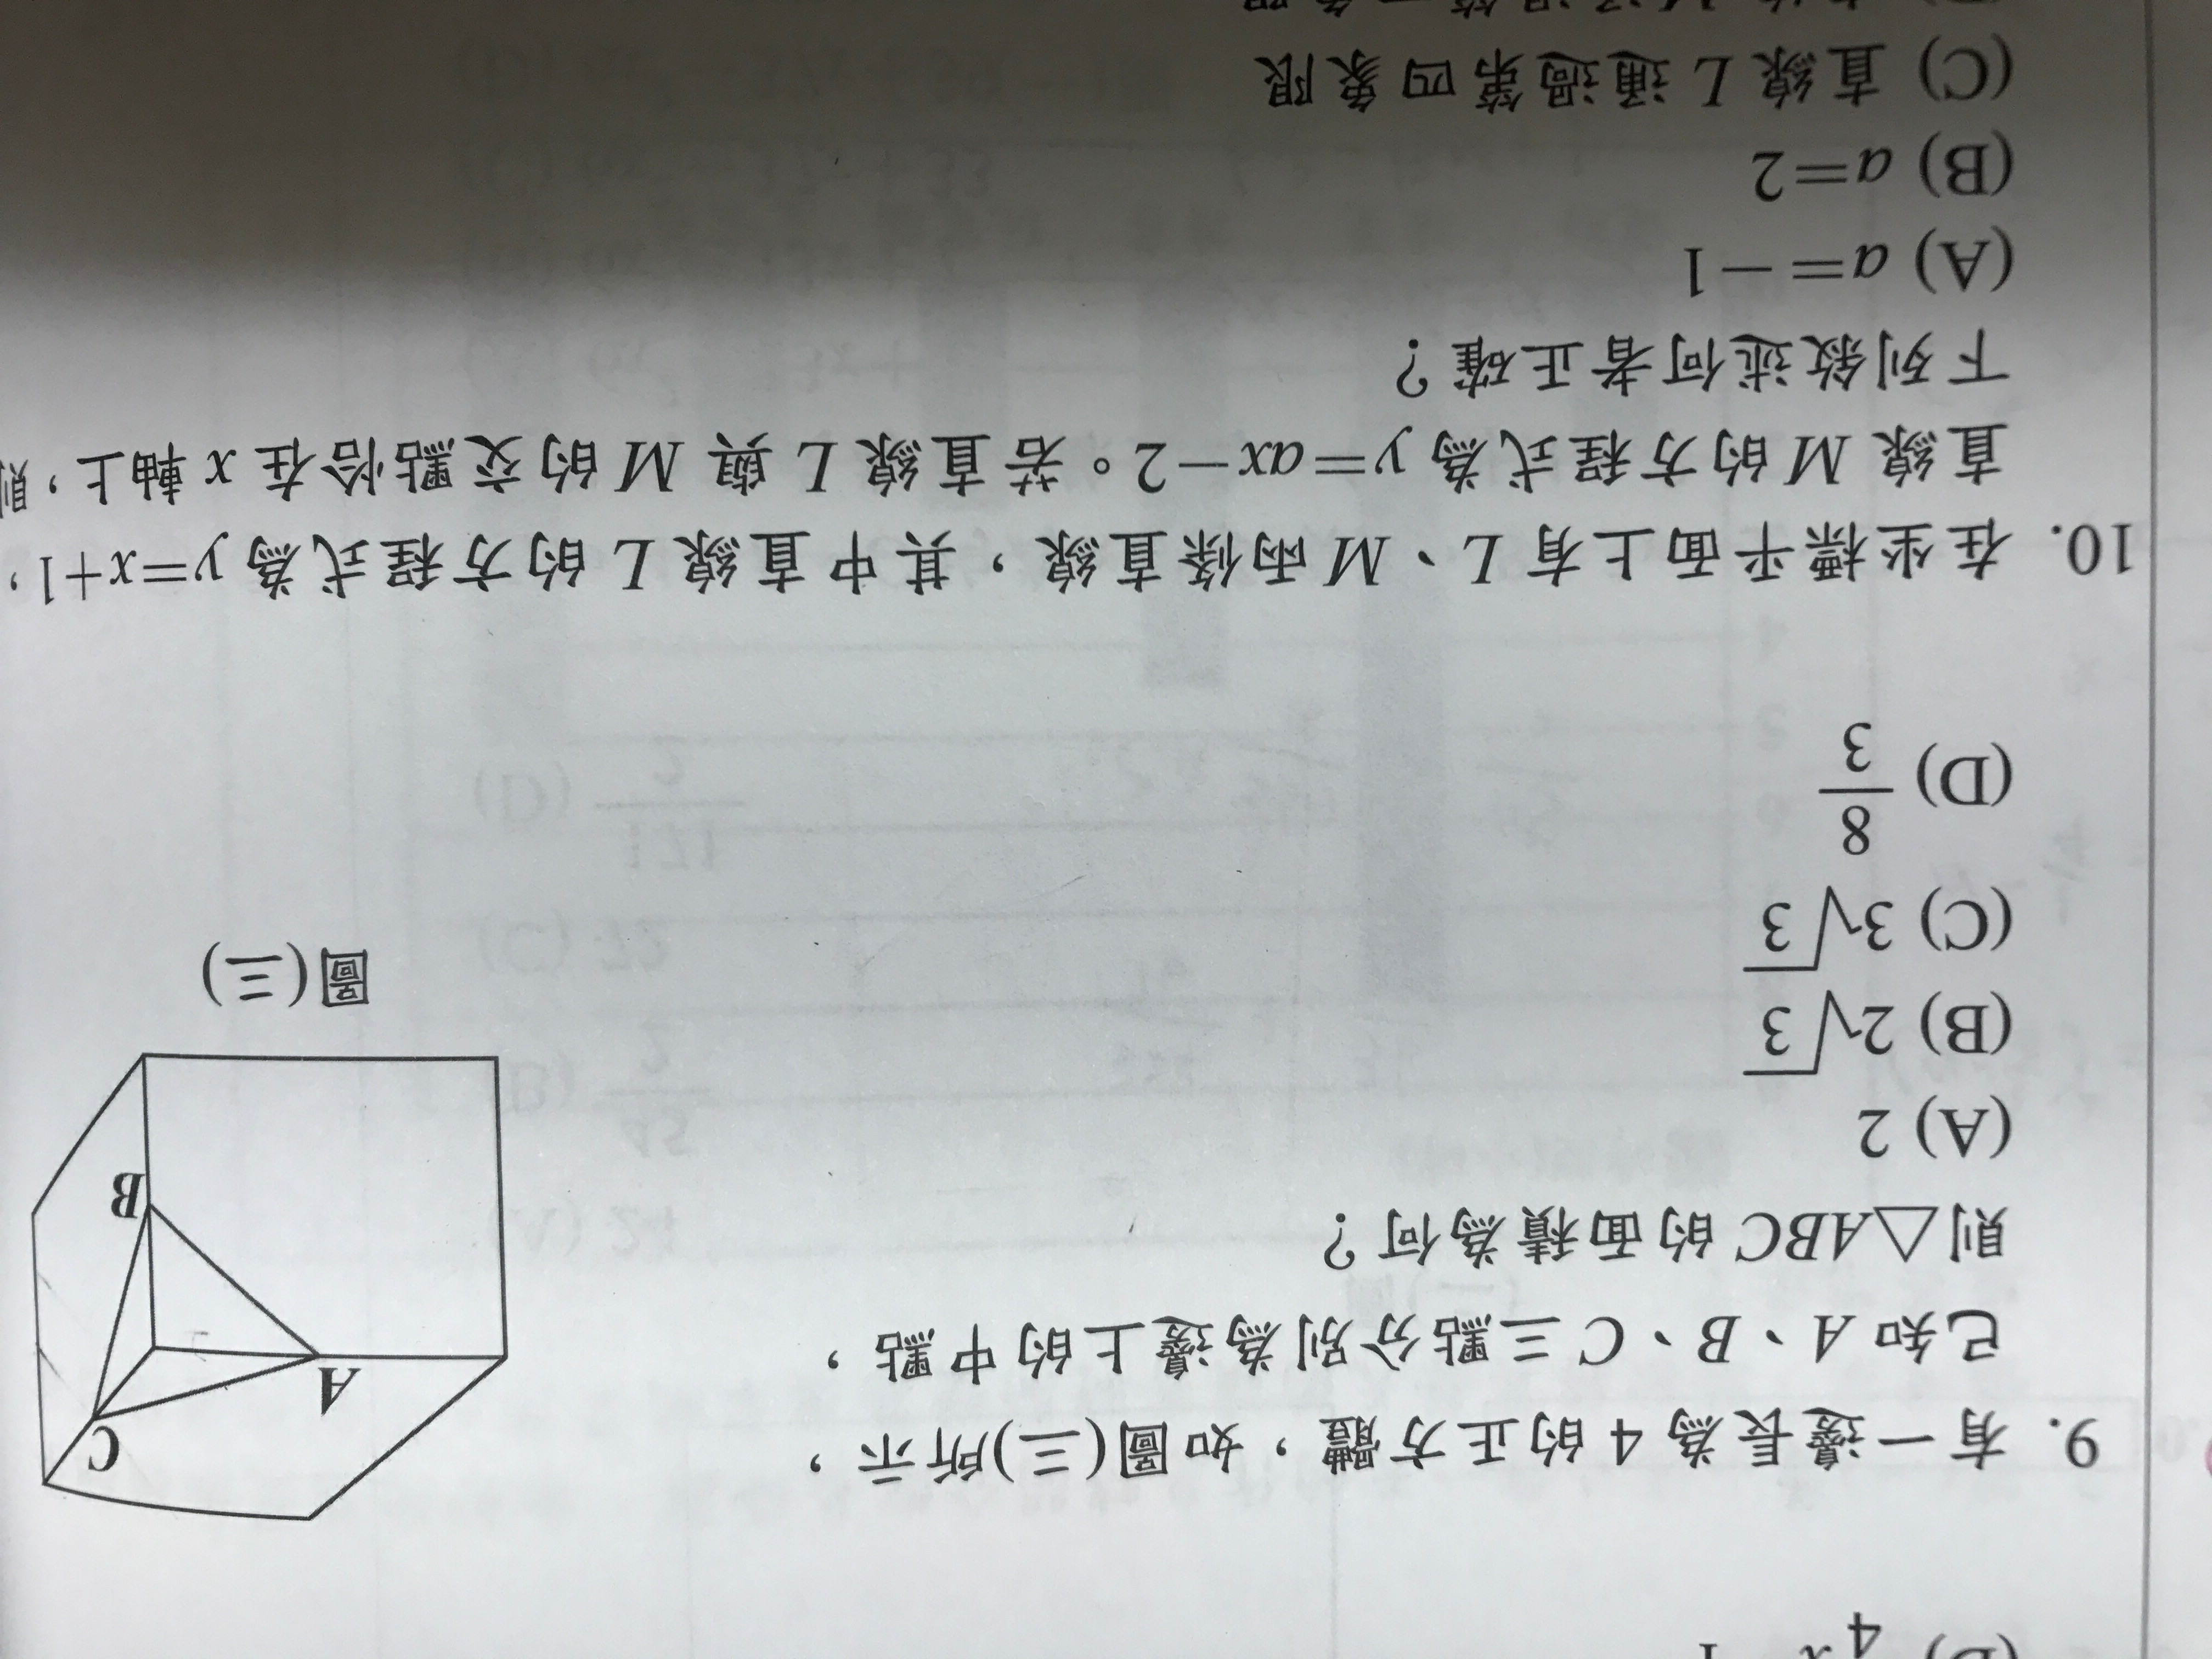 (D) 4
9. 有一邊長為 4 的正方體，如圖(三)所示，
已知 A、B、C 三點分別為邊上的中點，
則△ABC 的面積為何？
(A) 2
(B) 2√3
(C) 3√3
(D) 8/3
A
B
C
圖(三)
10. 在坐標平面上有 L、M 兩條直線，其中直線 L 的方程式為 y=x+1，
直線 M 的方程式為 y=ax−2。若直線 L 與 M 的交點恰在 x 軸上，則
下列敘述何者正確？
(A) a=−1
(B) a=2
(C) 直線 L 通過第四象限